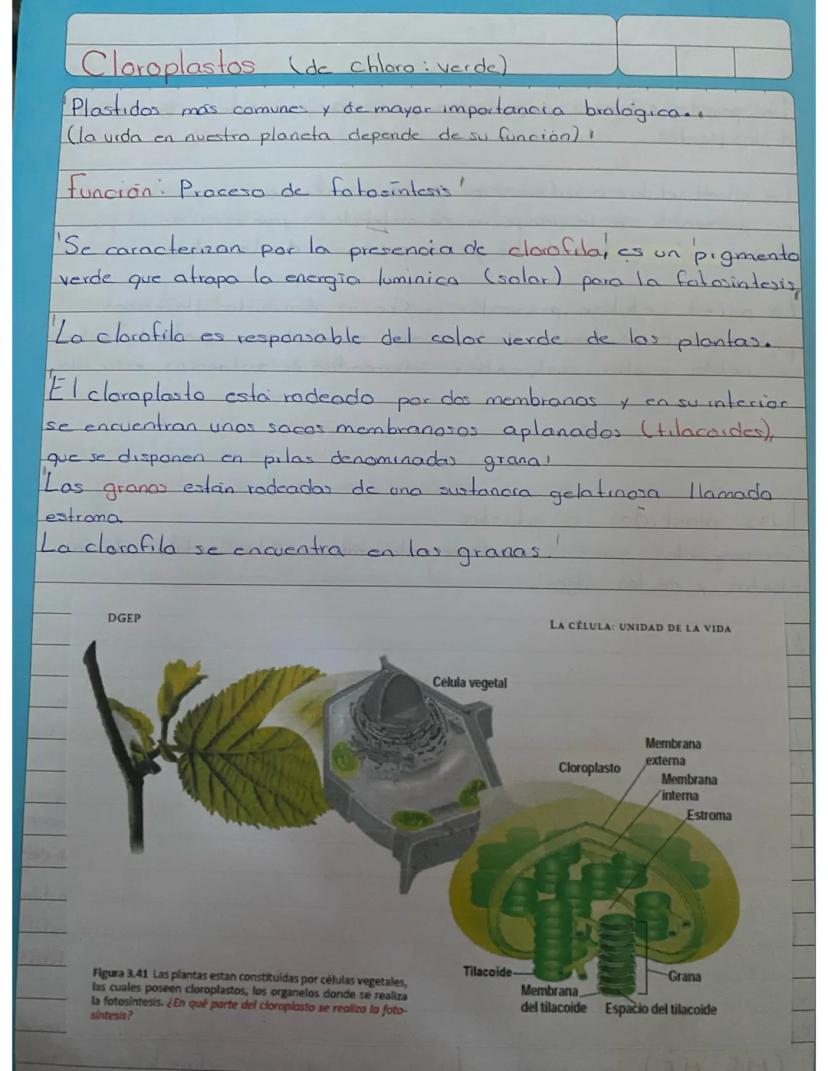 Cloroplastos (de chloro: verde)
Plastidos más comunes y de mayor importancia biológica.
(la vida en nuestro planeta depende de su función)
Función: Proceso de fotosíntesis
Se caracterizan por la presencia de clorofila, es un pigmento
verde que atrapa la energía luminica (solar) para la fotosintesis
La clorofila es responsable del color verde de las plantas.
El cloroplasto está rodeado por dos membranas y en su interior
se encuentran unos sacos membranosos aplanados (tilacoides),
que se disponen en pilas denominadas grana
Las granas están rodeadas de una sustancia gelatinosa llamada
estroma
La clorofila se encuentra en las granas.
DGEP
LA CÉLULA: UNIDAD DE LA VIDA
Célula vegetal
Cloroplasto
Membrana
externa
Membrana
interna
Estroma
Tilacoide
Membrana
del tilacoide
Grana
Espacio del tilacoide
Figura 3.41 Las plantas estan constituidas por células vegetales,
las cuales poseen cloroplastos, los organelos donde se realiza
la fotosíntesis. ¿En qué parte del cloroplasto se realiza la foto-
síntesis?